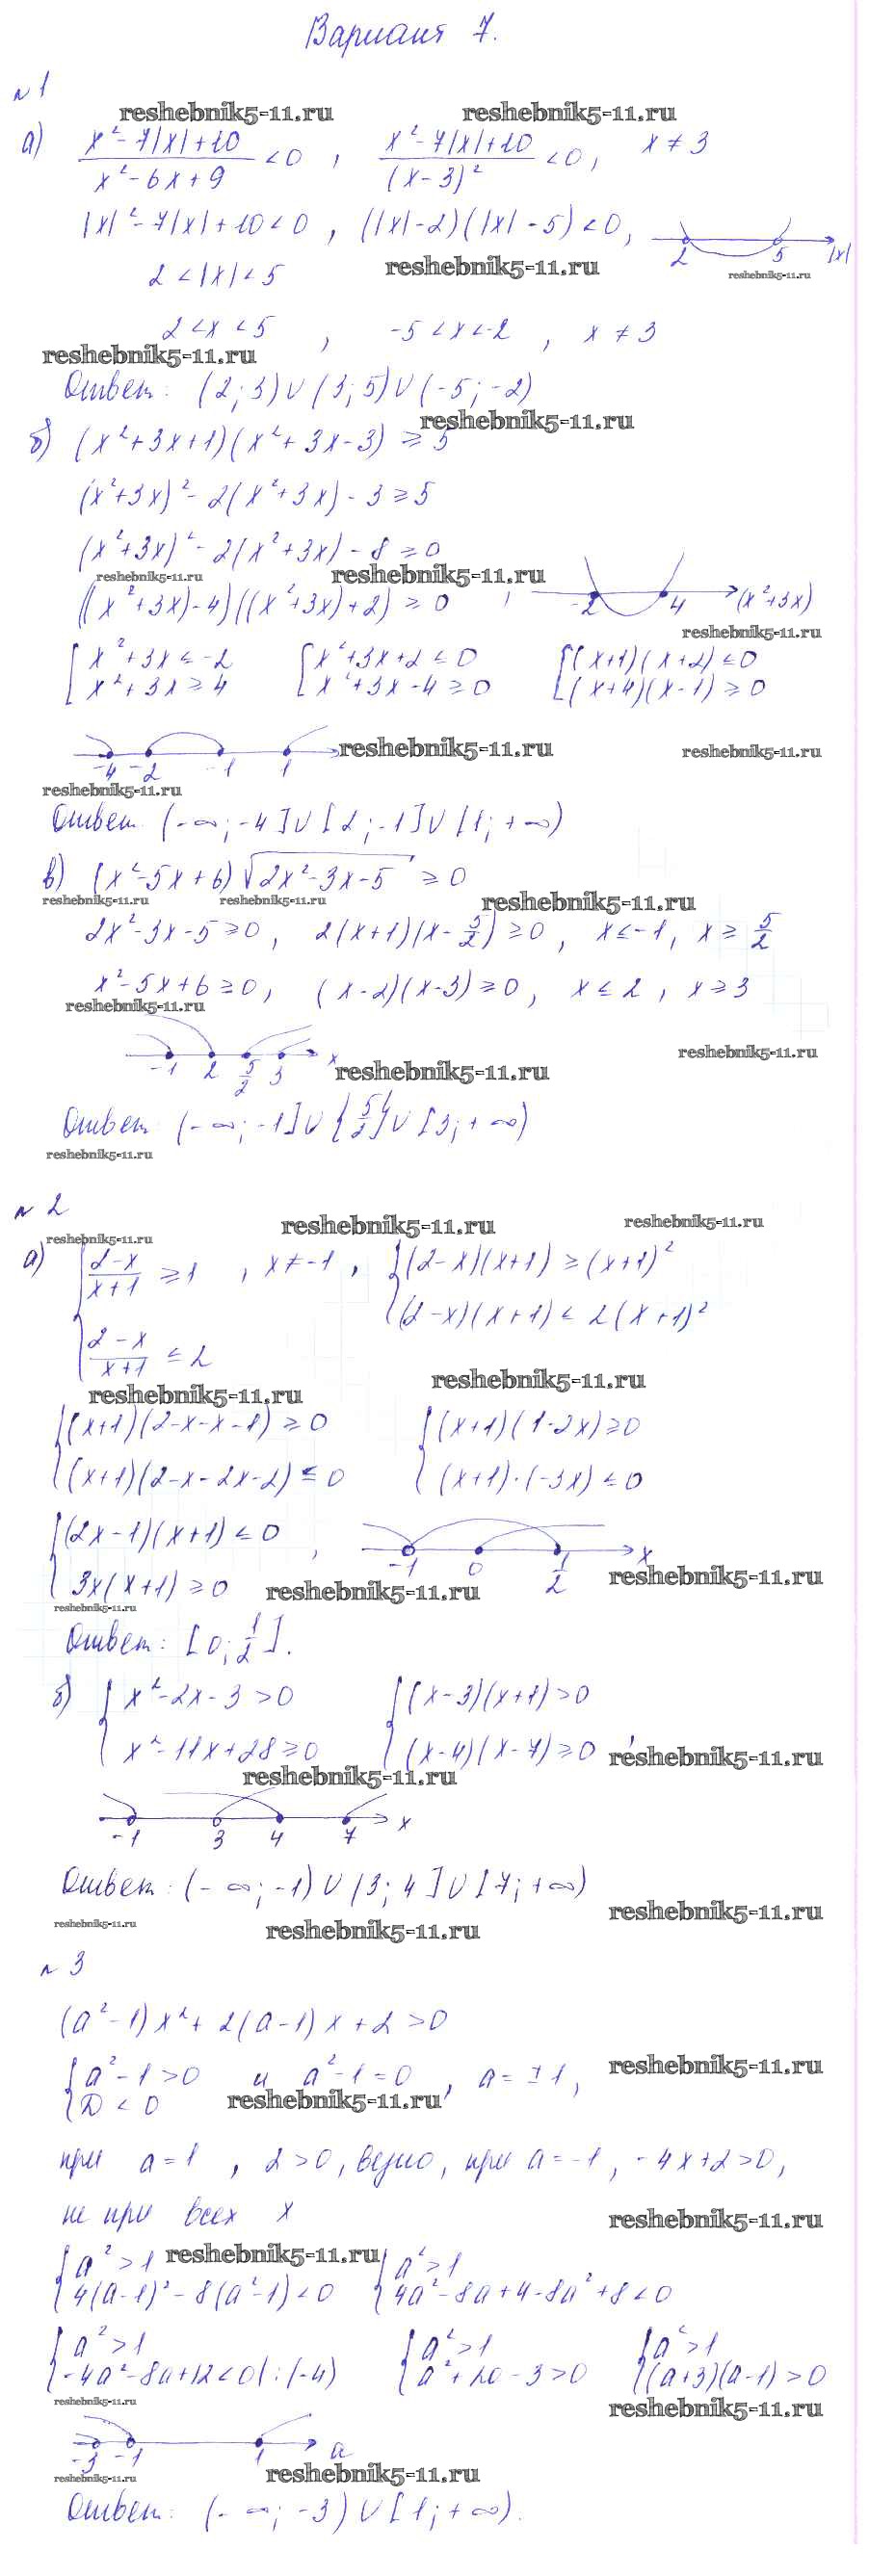 Вариант 7.
№1
reshebnik5-11.ru reshebnik5-11.ru
а) (x²-7|x|+10)/(x²-6x+9) <0, (x²-7|x|+10)/(x-3)² <0, x≠3
|x|²-7|x|+10<0, (|x|-2)(|x|-5)<0, 2 5 |x|
2<|x|<5 reshebnik5-11.ru reshebnik5-11.ru
2<x<5, -5<x<-2, x≠3
reshebnik5-11.ru
Ответ: (2;3)∪(3;5)∪(-5;-2)
reshebnik5-11.ru
б) (x²+3x+1)(x²+3x-3)≥5
(x²+3x)²-2(x²+3x)-3≥5
(x²+3x)²-2(x²+3x)-8≥0
reshebnik5-11.ru reshebnik5-11.ru
((x²+3x)-4)((x²+3x)+2)≥0, -2 4 (x²+3x)
reshebnik5-11.ru
[x²+3x≤-2 [x²+3x+2≤0 [(x+1)(x+2)≤0
x²+3x≥4 x²+3x-4≥0 (x+4)(x-1)≥0
reshebnik5-11.ru reshebnik5-11.ru
-4 -2 -1 1
reshebnik5-11.ru
Ответ: (-∞;-4]∪[2;-1]∪[1;+∞)
в) (x²-5x+6)√(2x²-3x-5) ≥0
reshebnik5-11.ru reshebnik5-11.ru reshebnik5-11.ru
2x²-3x-5≥0, 2(x+1)(x-5/2)≥0, x≤-1, x≥5/2
x²-5x+6≥0, (x-2)(x-3)≥0, x≤2, x≥3
reshebnik5-11.ru
reshebnik5-11.ru
-1 2 5/2 3 x reshebnik5-11.ru
Ответ: (-∞;-1]∪{5/2}∪[3;+∞)
reshebnik5-11.ru
№2
reshebnik5-11.ru reshebnik5-11.ru reshebnik5-11.ru
а) {(2-x)/(x+1) ≥1, x≠-1, {(2-x)(x+1)≥(x+1)²
(2-x)/(x+1) ≤2 (2-x)(x+1)≤2(x+1)²
reshebnik5-11.ru reshebnik5-11.ru
{(x+1)(2-x-x-1)≥0 {(x+1)(1-2x)≥0
(x+1)(2-x-2x-2)≤0 (x+1)·(-3x)≤0
{(2x-1)(x+1)≤0, -1 0 1/2 x
3x(x+1)≥0 reshebnik5-11.ru reshebnik5-11.ru
reshebnik5-11.ru
Ответ: [0;1/2].
б) {x²-2x-3>0 {(x-3)(x+1)>0
x²-11x+28≥0 (x-4)(x-7)≥0, reshebnik5-11.ru
reshebnik5-11.ru
-1 3 4 7 x
Ответ: (-∞;-1)∪(3;4]∪[7;+∞)
reshebnik5-11.ru
reshebnik5-11.ru reshebnik5-11.ru
№3
(a²-1)x²+2(a-1)x+2>0
{a²-1>0 и a²-1=0, a=±1, reshebnik5-11.ru
D<0 reshebnik5-11.ru
при a=1, 2>0, верно, при a=-1, -4x+2>0,
не при всех x
reshebnik5-11.ru
{a²>1 reshebnik5-11.ru {a²>1
4(a-1)²-8(a²-1)<0 4a²-8a+4-8a²+8<0
{a²>1 {a²>1 {a²>1
-4a²-8a+12<0|:(-4) a²+2a-3>0 (a+3)(a-1)>0
reshebnik5-11.ru reshebnik5-11.ru
-3 -1 1 a
reshebnik5-11.ru reshebnik5-11.ru
Ответ: (-∞;-3)∪[1;+∞).